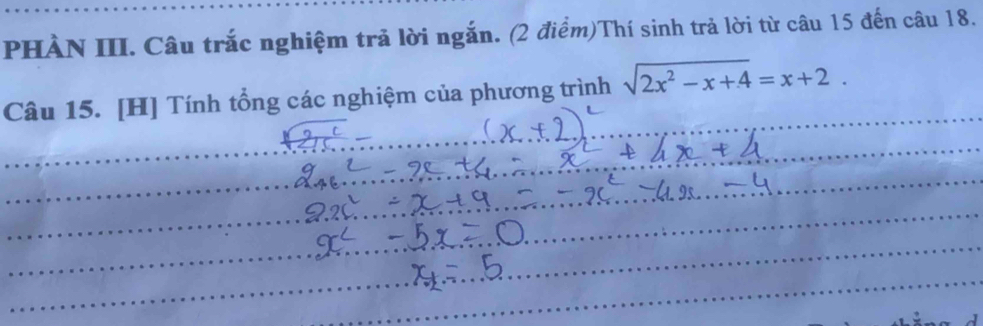 PHẦN III. Câu trắc nghiệm trả lời ngắn. (2 điểm)Thí sinh trả lời từ câu 15 đến câu 18.
Câu 15. [H] Tính tổng các nghiệm của phương trình √(2x² − x + 4) = x + 2 .
(x + 2)²
2x² - x + 4 = x² + 4x + 4
2x² - x + 4 = -x² -4x -4
x² - 5x = 0
= 5